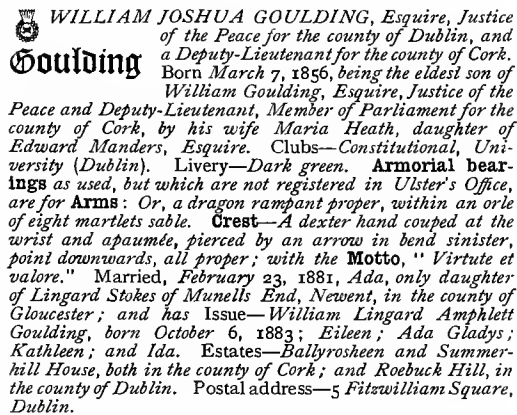 WILLIAM JOSHUA GOULDING, Esquire, Justice
of the Peace for the county of Dublin, and
Goulding a Deputy-Lieutenant for the county of Cork.
Born March 7, 1856, being the eldest son of
William Goulding, Esquire, Justice of the
Peace and Deputy-Lieutenant, Member of Parliament for the
county of Cork, by his wife Maria Heath, daughter of
Edward Manders, Esquire. Clubs—Constitutional, Uni-
versity (Dublin). Livery—Dark green. Armorial bear-
ings as used, but which are not registered in Ulster's Office,
are for Arms: Or, a dragon rampant proper, within an orle
of eight martlets sable. Crest—A dexter hand couped at the
wrist and apaumée, pierced by an arrow in bend sinister,
point downwards, all proper; with the Motto, "Virtute et
valore." Married, February 23, 1881, Ada, only daughter
of Lingard Stokes of Munells End, Newent, in the county of
Gloucester; and has Issue—William Lingard Amphlett
Goulding, born October 6, 1883; Eileen; Ada Gladys;
Kathleen; and Ida. Estates—Ballyrosheen and Summer-
hill House, both in the county of Cork; and Roebuck Hill, in
the county of Dublin. Postal address—5 Fitzwilliam Square,
Dublin.